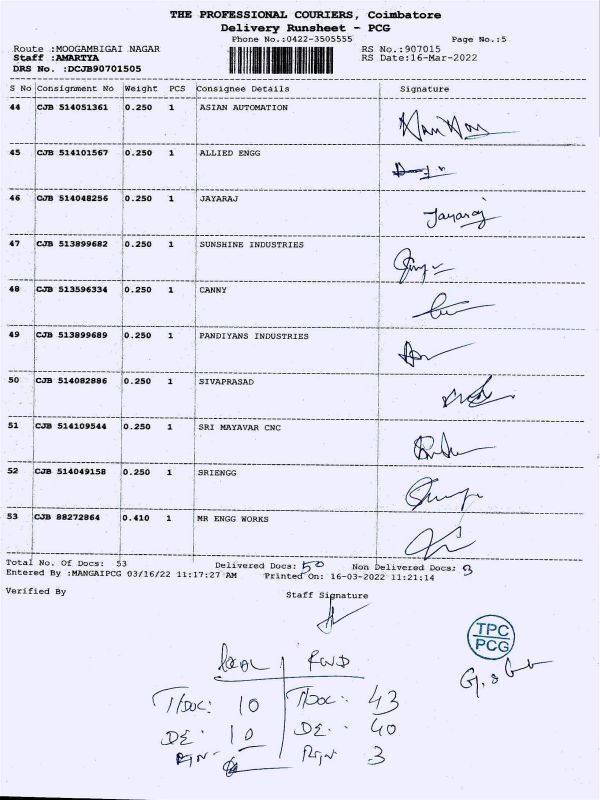 THE PROFESSIONAL COURIERS, Coimbatore
Delivery Runsheet - PCG
Phone No.:0422-3505555 Page No.:5
Route :MOOGAMBIGAI NAGAR RS No.:907015
Staff :AMARTYA RS Date:16-Mar-2022
DRS No. :DCJB90701505
S No Consignment No Weight PCS Consignee Details Signature
44 CJB 514051361 0.250 1 ASIAN AUTOMATION
45 CJB 514101567 0.250 1 ALLIED ENGG
46 CJB 514048256 0.250 1 JAYARAJ Jayaraj
47 CJB 513899682 0.250 1 SUNSHINE INDUSTRIES
48 CJB 513596334 0.250 1 CANNY
49 CJB 513899689 0.250 1 PANDIYANS INDUSTRIES
50 CJB 514082886 0.250 1 SIVAPRASAD
51 CJB 514109544 0.250 1 SRI MAYAVAR CNC
52 CJB 514049158 0.250 1 SRIENGG
53 CJB 88272864 0.410 1 MR ENGG WORKS
Total No. Of Docs: 53 Delivered Docs: 50 Non Delivered Docs: 3
Entered By :MANGAIPCG 03/16/22 11:17:27 AM Printed On: 16-03-2022 11:21:14
Verified By Staff Signature
TPC
PCG
Local
T/Doc: 10 T/Doc: 43
DE: 10 DE: 40
RTN: RTN 3